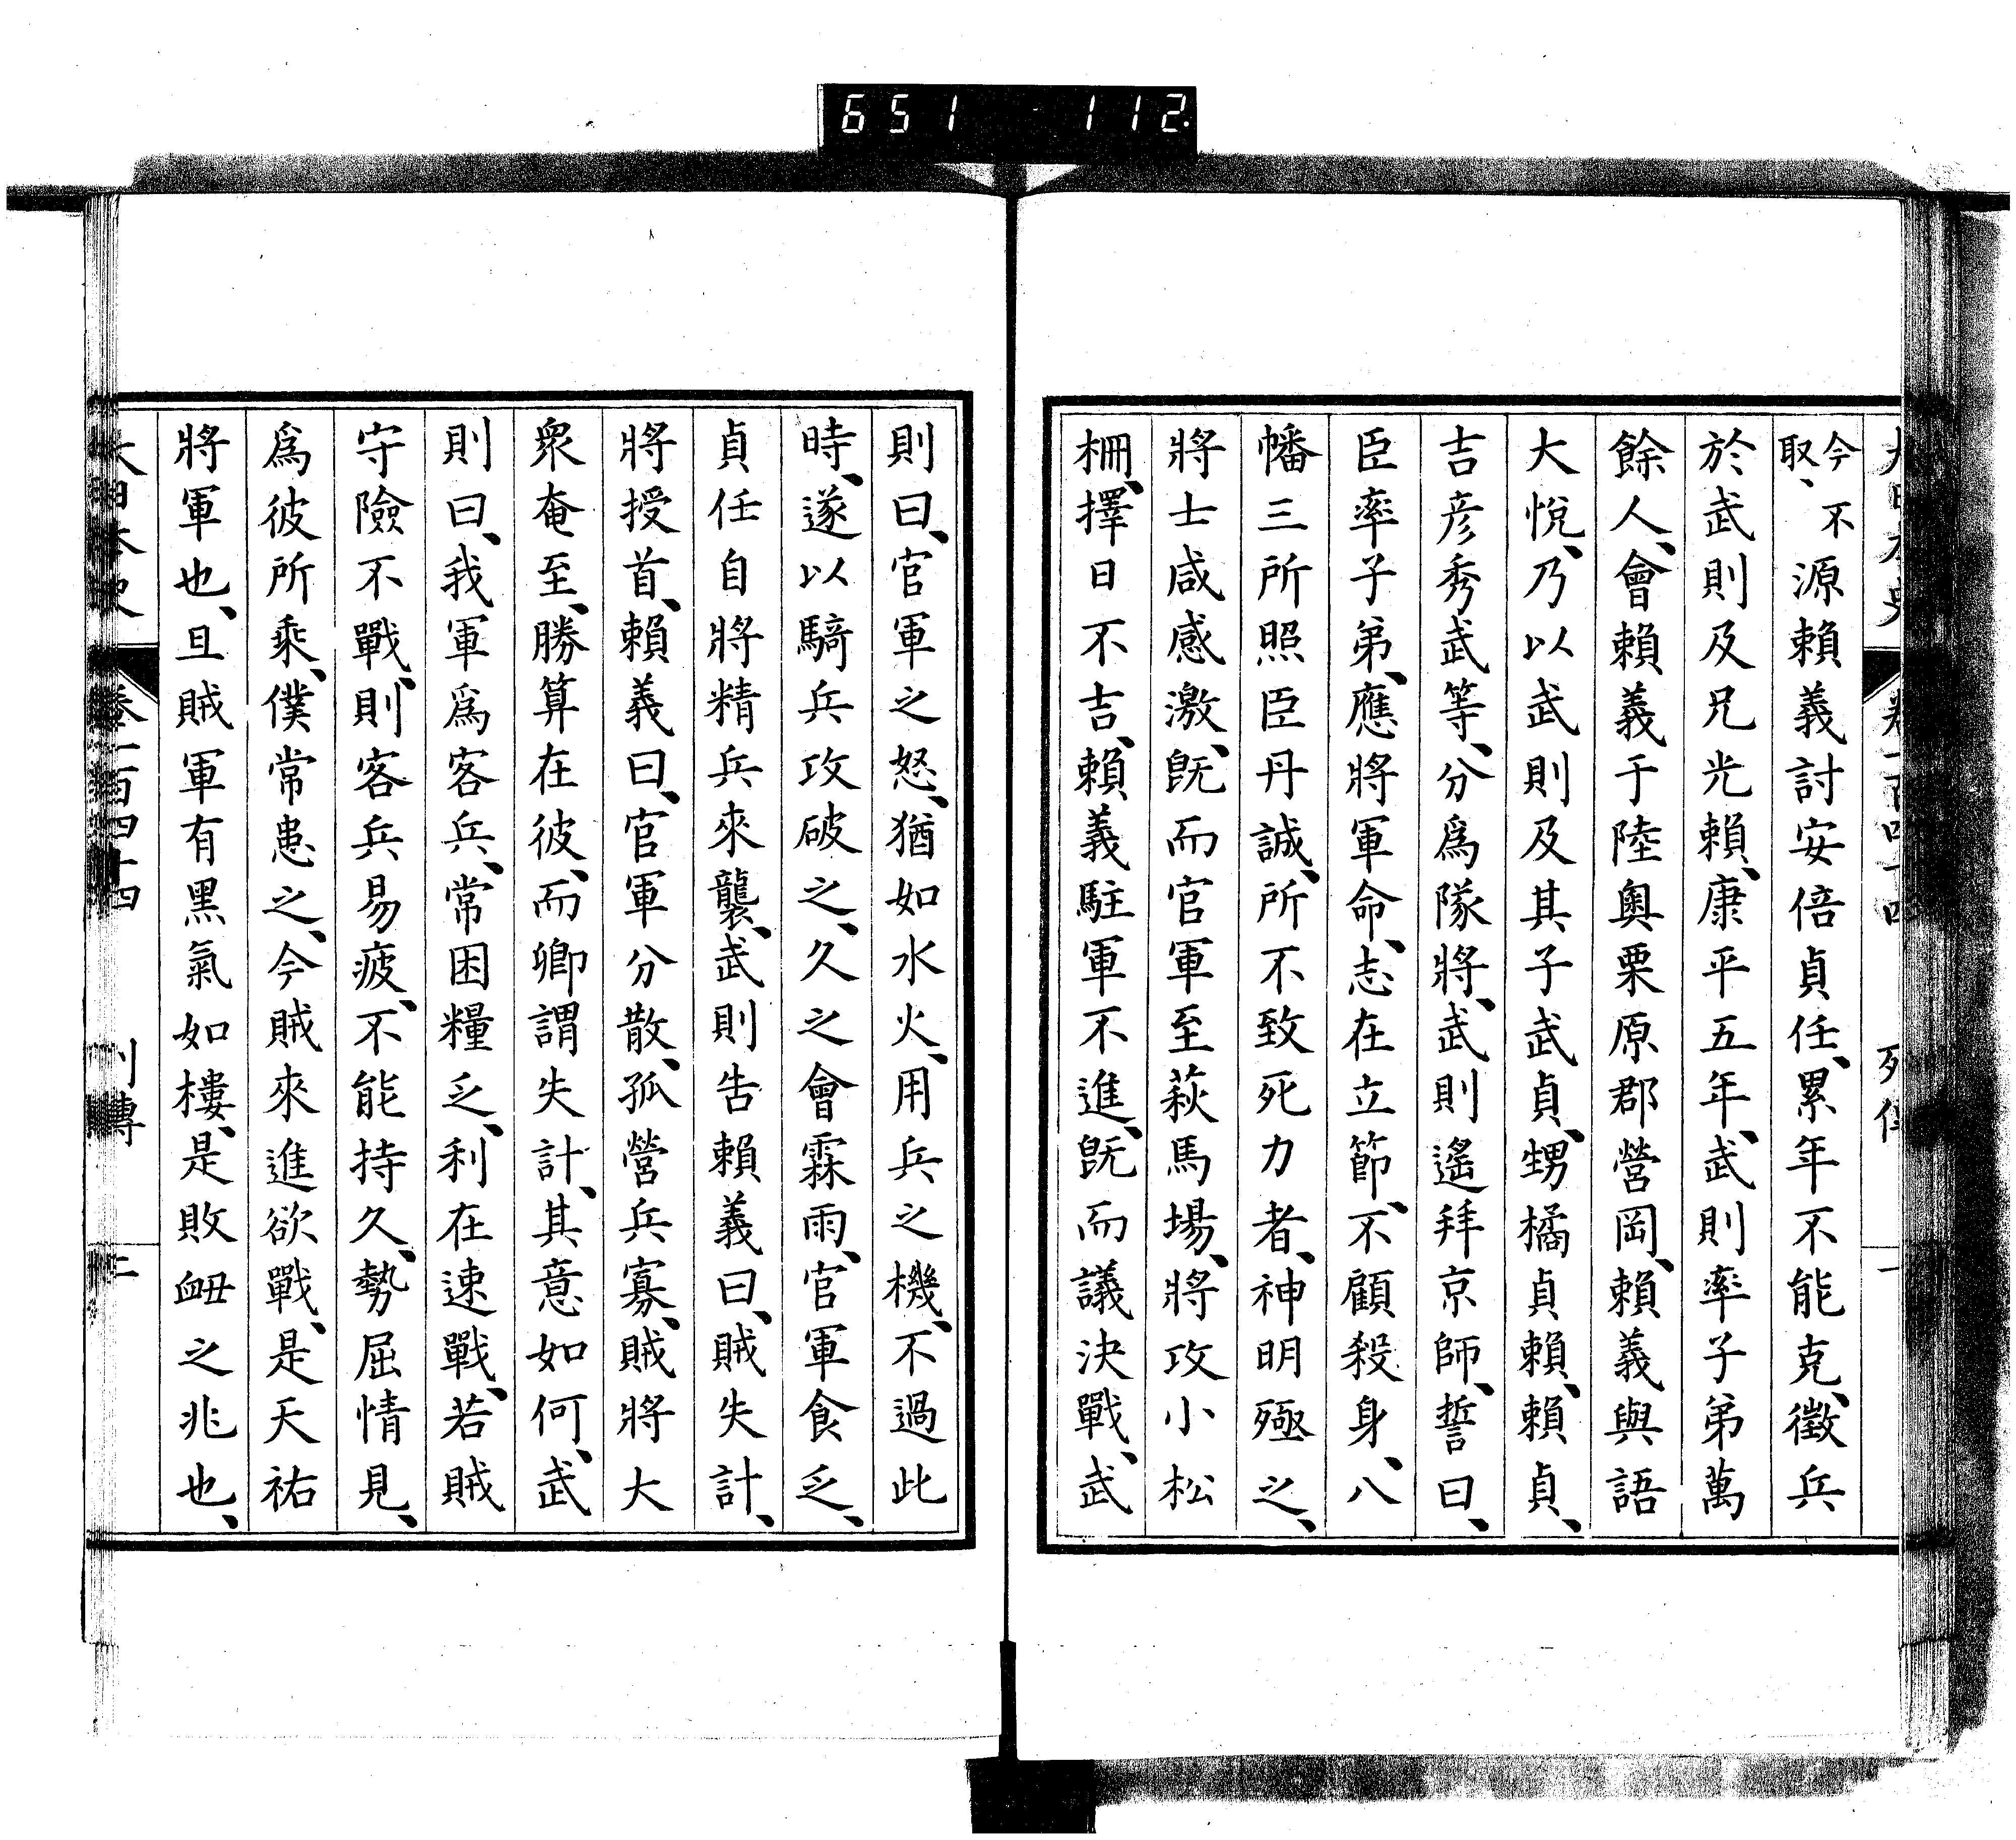 651 112
今不
取、源賴義討安倍貞任、累年不能克、徵兵
於武則及兄光賴、康平五年、武則率子弟萬
餘人、會賴義于陸奧栗原郡營岡、賴義與語
大悅、乃以武則及其子武貞、甥橘貞賴、賴貞、
吉彦秀武等、分爲隊將、武則遙拜京師、誓曰、
臣率子弟、應將軍命、志在立節、不顧殺身、八
幡三所照臣丹誠、所不致死力者、神明殛之、
將士咸感激、旣而官軍至萩馬場、將攻小松
柵、擇日不吉、賴義駐軍不進、旣而議決戰、武
則曰、官軍之怒、猶如水火、用兵之機、不過此
時、遂以騎兵攻破之、久之會霖雨、官軍食乏、
貞任自將精兵來襲、武則告賴義曰、賊失計、
將授首、賴義曰、官軍分散、孤營兵寡、賊將大
衆奄至、勝算在彼、而卿謂失計、其意如何、武
則曰、我軍爲客兵、常困糧乏、利在速戰、若賊
守險不戰、則客兵易疲、不能持久、勢屈情見、
爲彼所乘、僕常患之、今賊來進欲戰、是天祐
將軍也、且賊軍有黑氣如樓、是敗衂之兆也、
大日本史 卷一百四十四 列傳 二